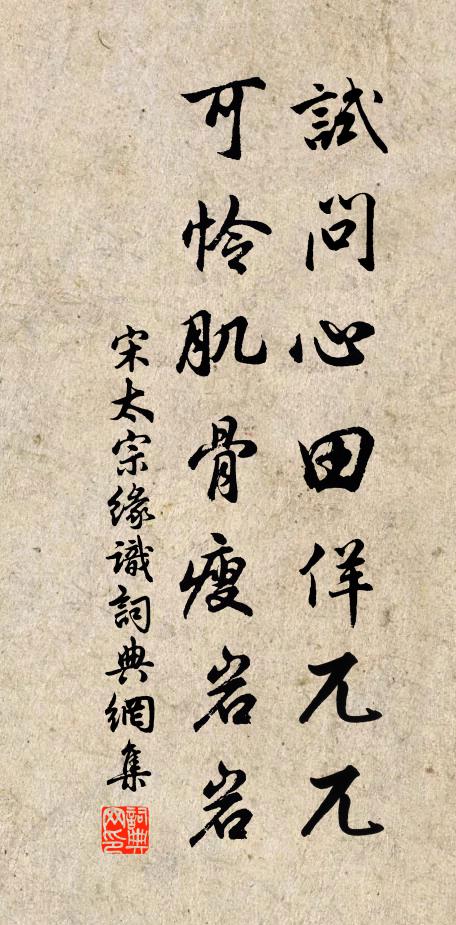 試問心田佯兀兀
可憐肌骨瘦岩岩
宋太宗緣識詞典網集
詞典网印